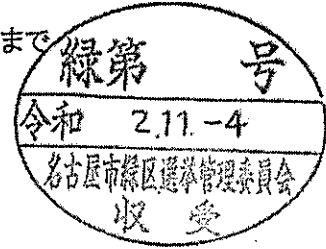 まで
緑第 号
令和 2.11.-4
名古屋市緑区選挙管理委員会
収受